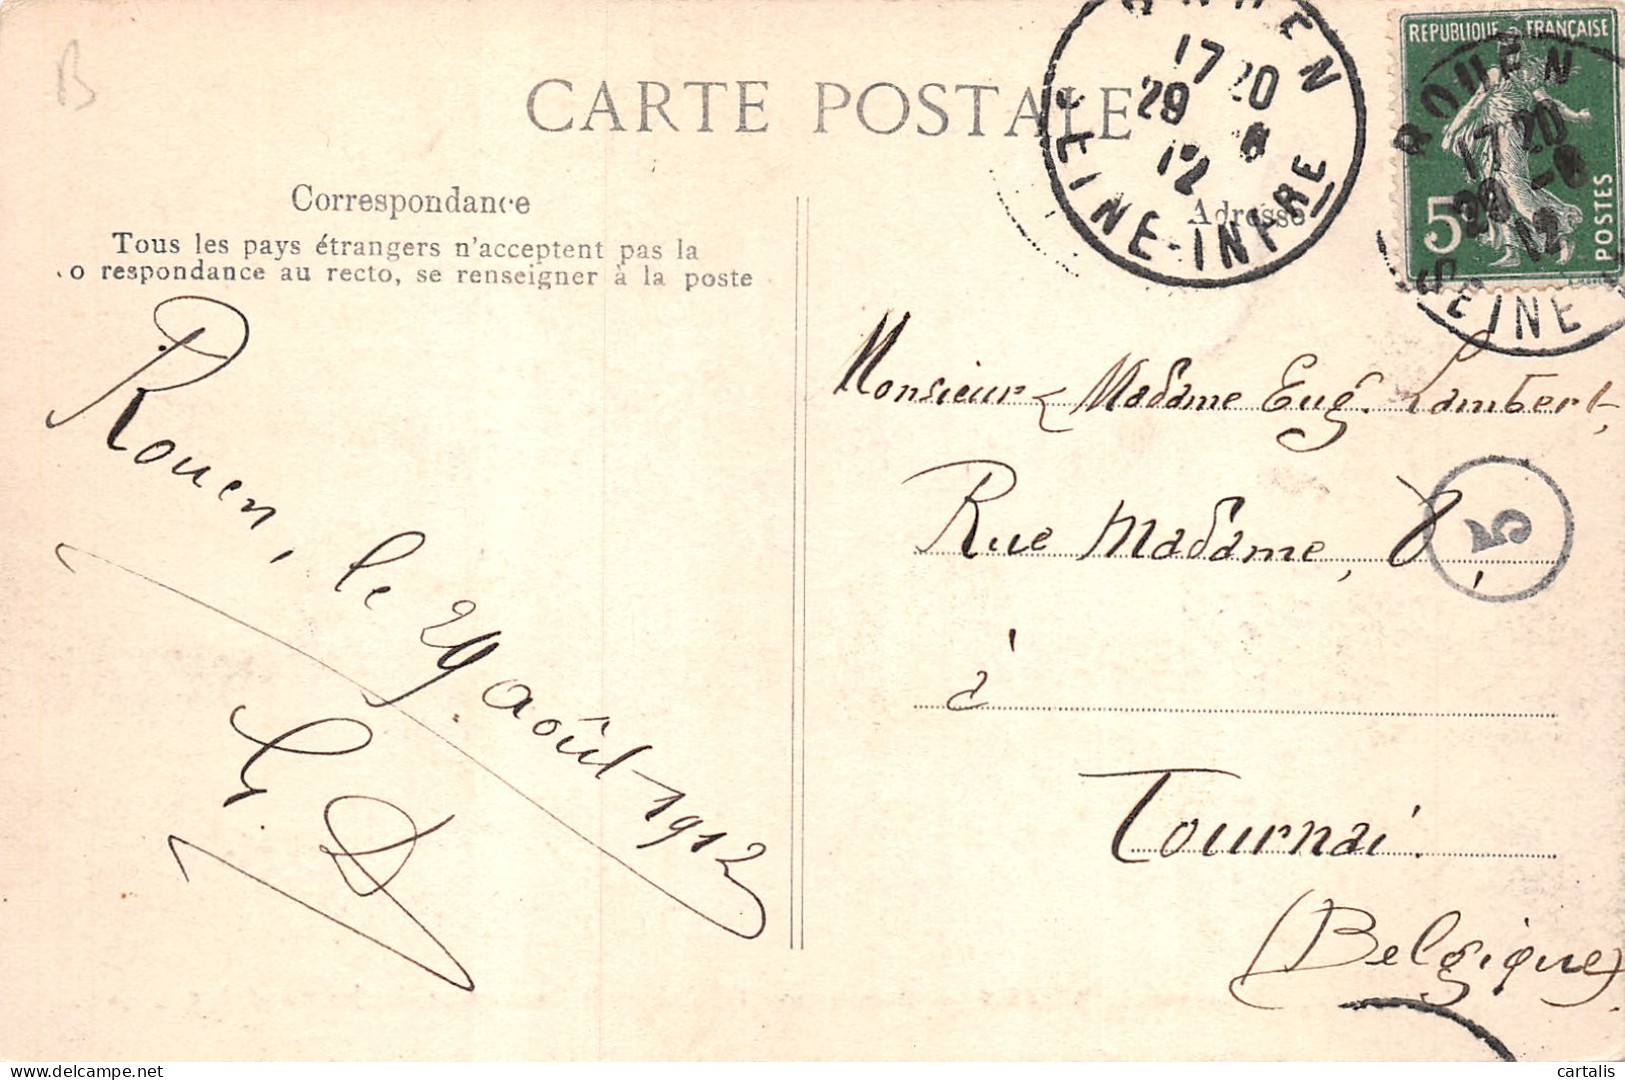 B
CARTE POSTALE
Correspondance
Tous les pays étrangers n'acceptent pas la
o respondance au recto, se renseigner à la poste
Rouen, le 29 août 1912
G. D
ROUEN
17 20
29 8
12
SEINE-INFRE
Adresse
REPUBLIQUE FRANÇAISE
5c
POSTES
ROUEN
17 20
29 -8
12
SEINE
Monsieur & Madame Eug. Lambert,
Rue Madame, 8,
5
à
Tournai.
(Belgique)
Delcampe.net
cartalis